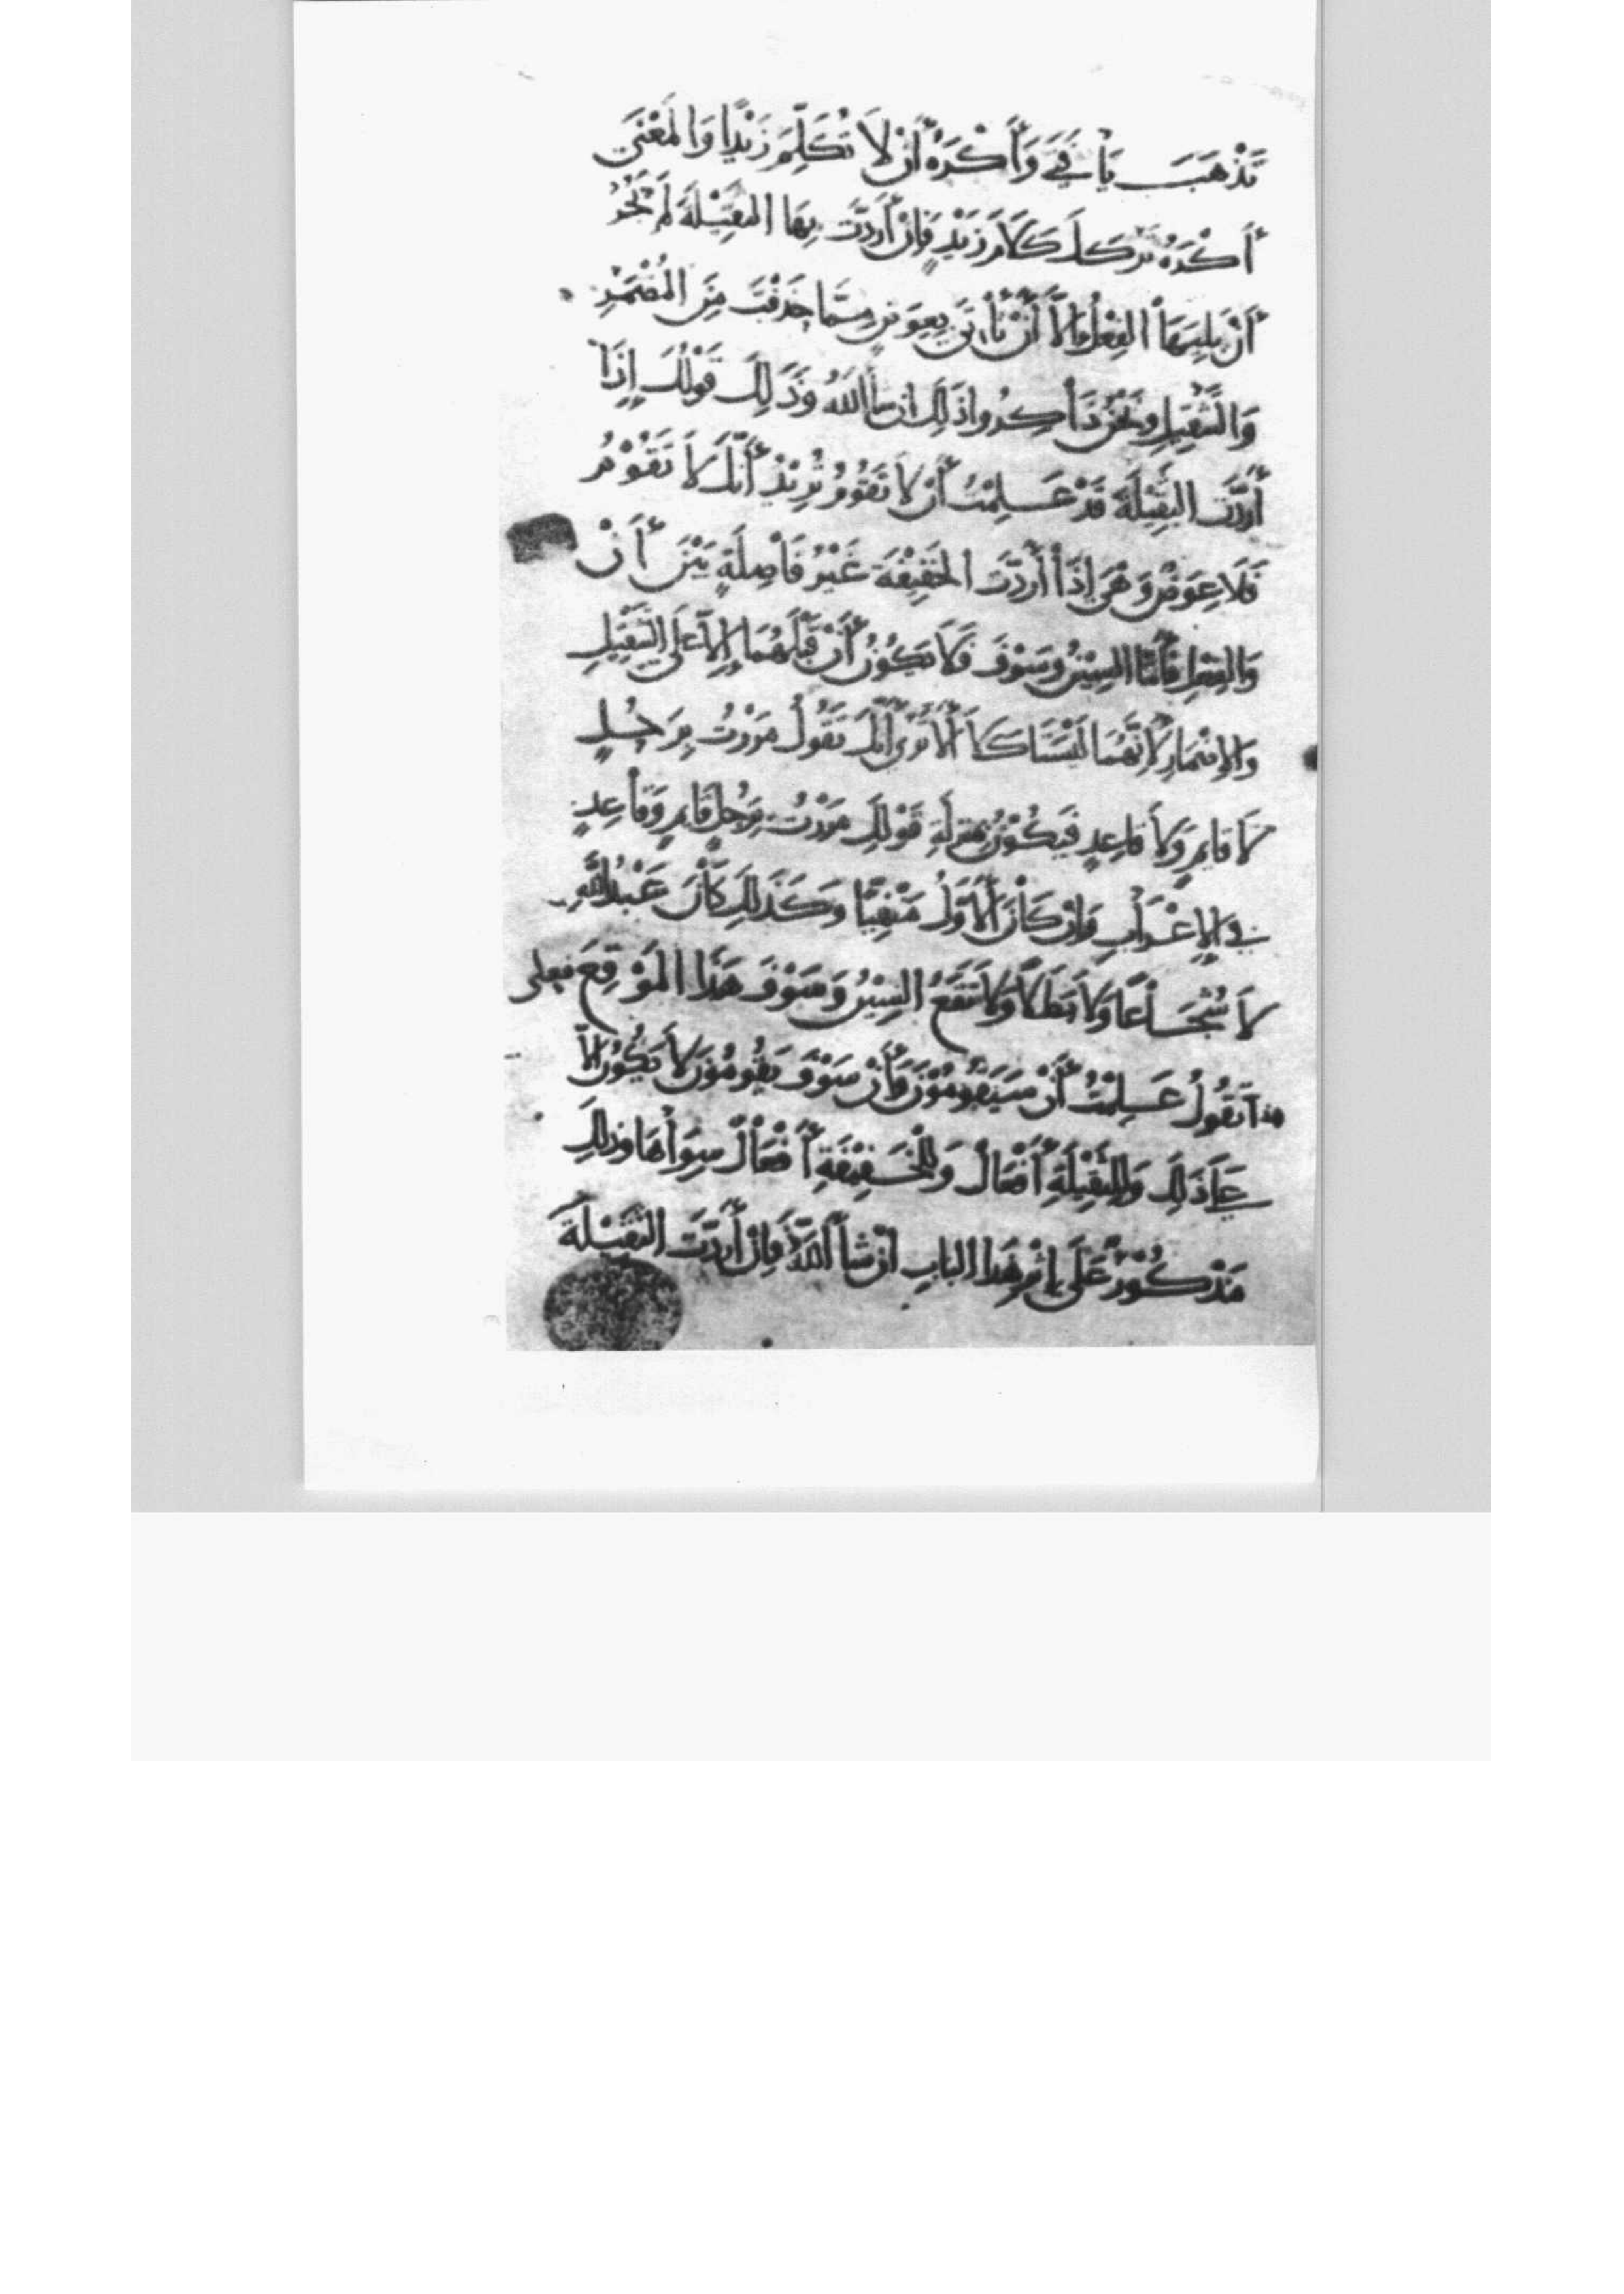 تَذْهَبَ يَا فَتَى وَأَكْرَهُ أَنْ لَا تُكَلِّمَ زَيْدًا وَالمَعْنَى
أَكْرَهُ تَرْكَكَ كَلَامَ زَيْدٍ فَإِنْ أَرَدْتَ بِهَا الثَّقِيْلَةَ لَمْ يَجُزْ
أَنْ يَلِيَهَا الفِعْلُ إِلَّا أَنْ تَأْتِيَ بِعِوَضٍ مِمَّا حَذَفْتَ مِنَ المُضْمَرِ
وَالتَّثْقِيلِ وَنَحْنُ ذَاكِرُوا ذَلِكَ ان شَا اللَّهُ وَذَلِكَ قَوْلُكَ إِذَا
أَرَدْتَ الثَّقِيْلَةَ قَدْ عَلِمْتُ أَنْ لَا تَقُوْمُ تُرِيْدُ أَنَّكَ لَا تَقُوْمُ
فَلَا عِوَضٌ وَهْيَ إِذَا أَرَدْتَ الخَفِيْفَةَ غَيْرُ فَاصِلَةٍ بَيْنَ أَنْ
وَالفِعْلِ فَأَمَّا السِّيْنُ وَسَوْفَ فَلَا يَكُوْنُ أَنْ قَبْلَهُمَا إِلَّا عَلَى التَّثْقِيْلِ
وَالإِضْمَارِ لِأَنَّهُمَا لَيْسَتَا كَلَا أَلَا تَرَى أَنَّكَ تَقُوْلُ مَرَرْتُ بِرَجُلٍ
لَا قَايِمٍ وَلَا قَاعِدٍ فَيَكُوْنُ بِمَنْزِلَةِ قَوْلِكَ مَرَرْتُ بِرَجُلٍ قَايِمٍ وَقَاعِدٍ
فِي الإِعْرَابِ وَإِنْ كَانَ الأَوَّلُ مَنْفِيًّا وَكَذَلِكَ كَانَ عَبْدُ اللَّهِ
لَا شُجَاعًا وَلَا بَطَلًا وَلَا تَقَعُ السِّيْنُ وَسَوْفَ هَذَا المَوْقِعَ فعلى
هذا تَقُوْلُ عَلِمْتُ أَنْ سَيَقُوْمُوْنَ وَأَنْ سَوْفَ يَقُوْمُوْنَ لَا يَكُوْنُ إِلَّا
عَلَى ذَلِكَ وَلِلثَّقِيْلَةِ أَفْعَالٌ وَلِلْخَفِيْفَةِ أَفْعَالٌ سِوَاهَا وَذَلِكَ
مَذْكُوْرٌ عَلَى إِثْرِ هَذَا البَابِ انْ شَا اللَّهُ فَإِنْ أَرَدْتَ الثَّقِيْلَةَ